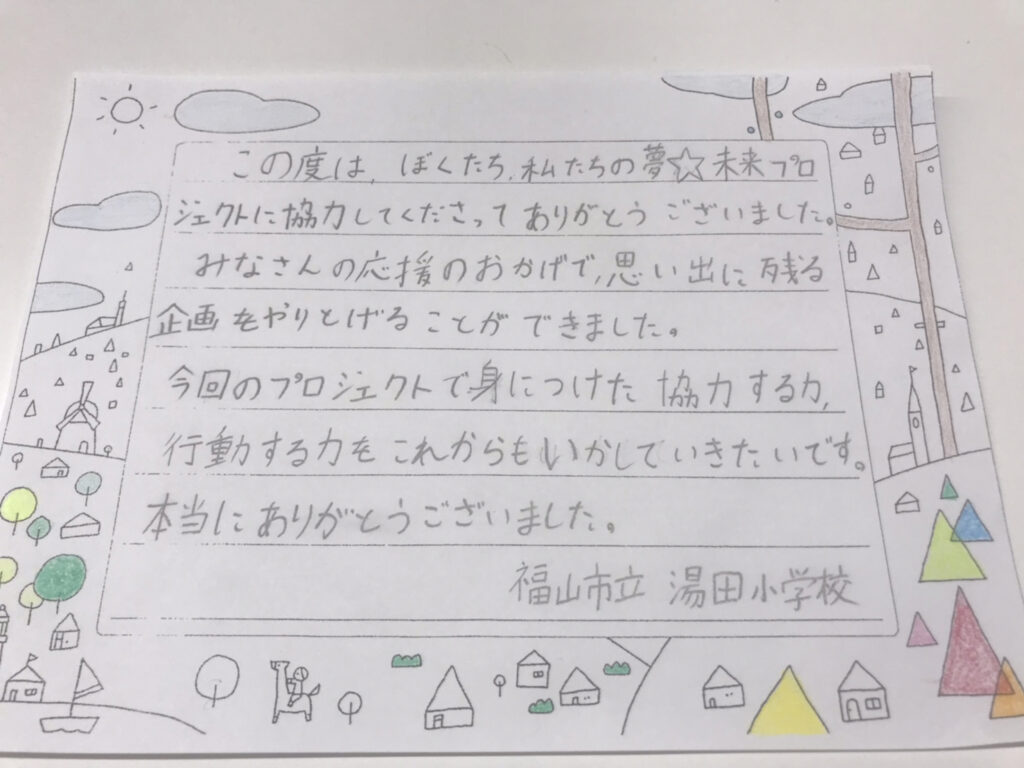 この度は,ぼくたち,私たちの夢☆未来プロ
ジェクトに協力してくださってありがとうございました。
みなさんの応援のおかげで,思い出に残る
企画をやりとげることができました。
今回のプロジェクトで身につけた協力する力,
行動する力をこれからもいかしていきたいです。
本当にありがとうございました。
福山市立 湯田小学校